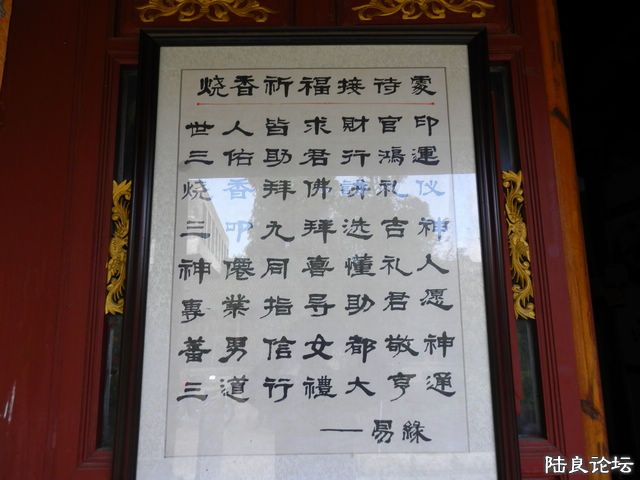 烧香祈福接待处
世人皆求財官印
三佑助君行鴻運
烧香拜佛讲礼仪
三叩九拜选吉神
神僊同喜懂礼人
專業指导助君愿
善男信女都敬神
三道行禮大亨通
——易緣
陆良论坛